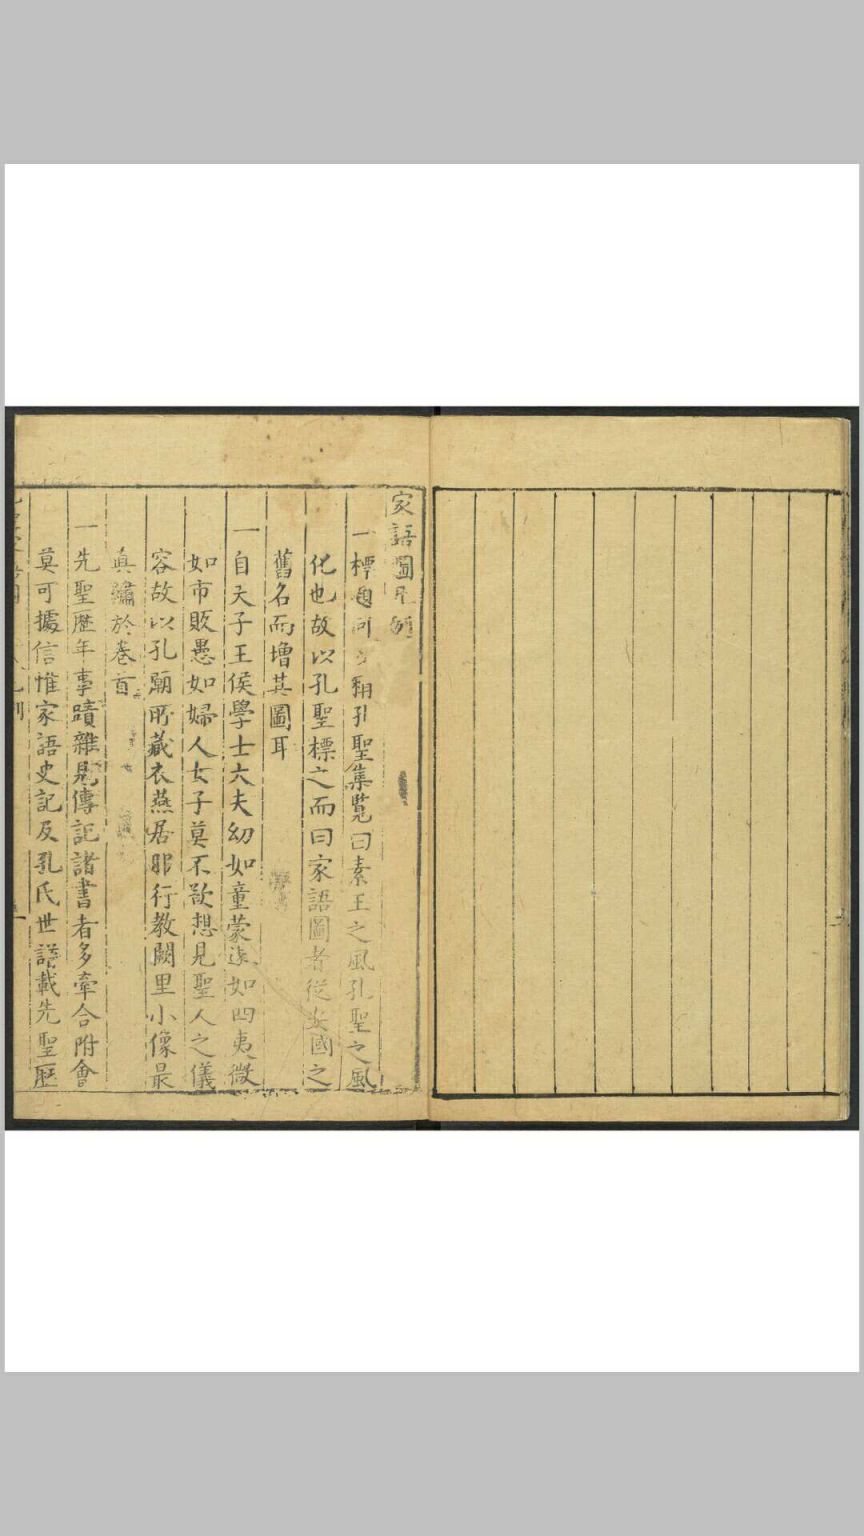 家語圖凡例
一標題何以稱孔聖集覽曰素王之風孔聖之風
化也故以孔聖標之而曰家語圖者從安國之
舊名而增其圖耳
一自天子王侯學士大夫幼如童蒙遠如四夷微
如市販愚如婦人女子莫不欲想見聖人之儀
容故以孔廟所藏衣燕居服行教闕里小像最
真繡於卷首
一先聖歷年事蹟雜見傳記諸書者多牽合附會
莫可據信惟家語史記及孔氏世譜載先聖歷